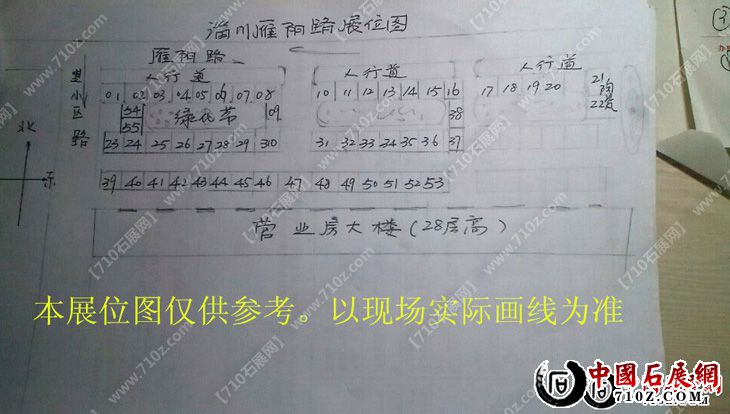 淄川雁阳路展位图
雁阳路
人行道 人行道 人行道
小区路
01 02 03 04 05 06 07 08 10 11 12 13 14 15 16 17 18 19 20 21
54 绿化带 09 38 22
55
23 24 25 26 27 28 29 30 31 32 33 34 35 36 37
北
东
39 40 41 42 43 44 45 46 47 48 49 50 51 52 53
营业房大楼(28层高)
本展位图仅供参考。以现场实际画线为准
中國石展網
710Z.COM
【710石展网】
www.710z.com